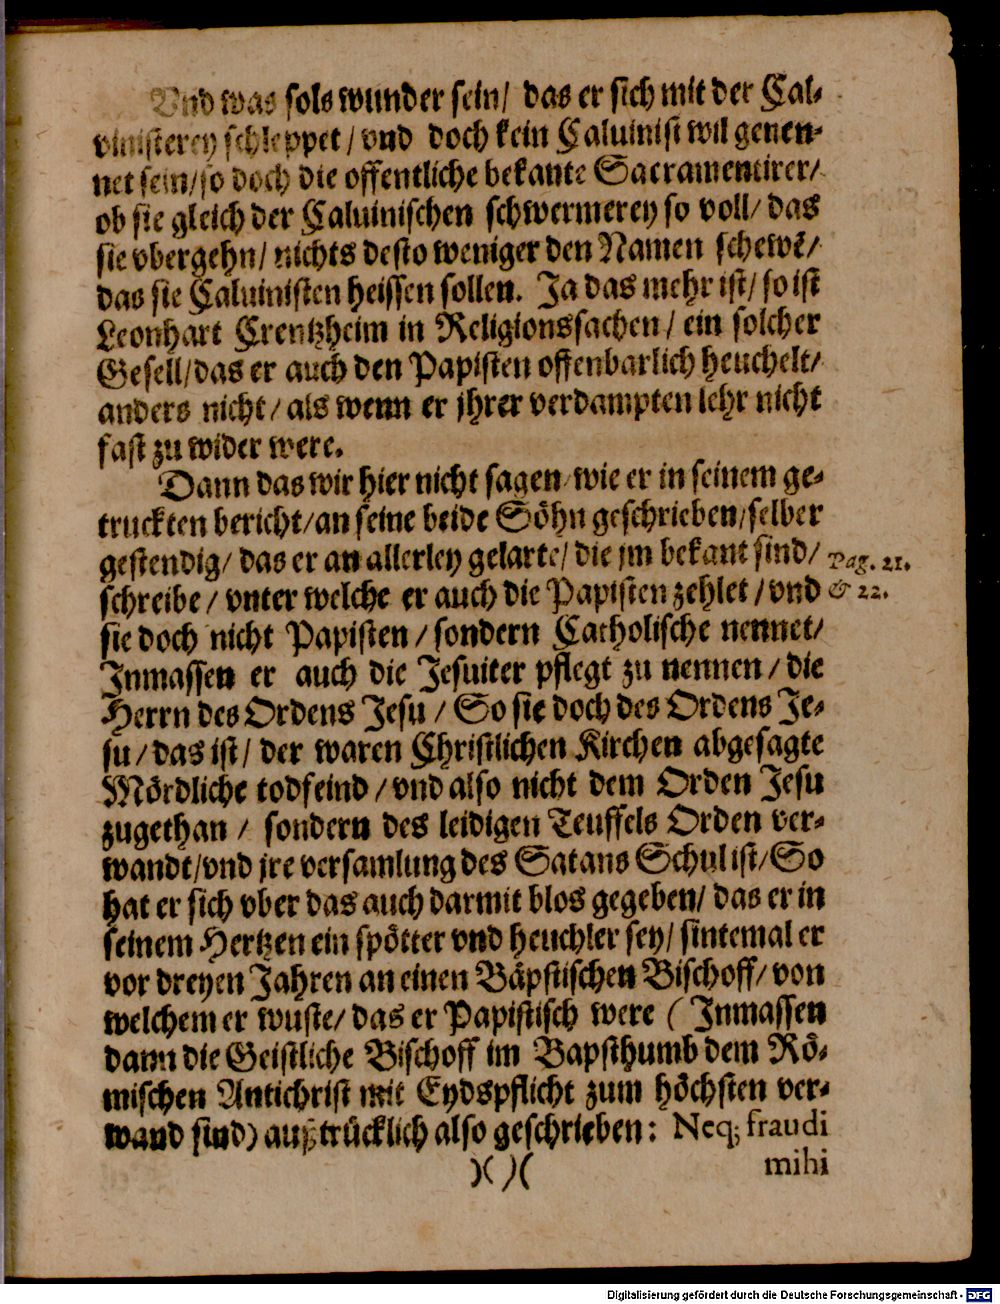 Vnd was sols wunder sein/ das er sich mit der Cal-
vinisterey schleppet/ vnd doch kein Caluinist wil genen-
net sein/so doch die offentliche bekante Sacramentirer/
ob sie gleich der Caluinischen schwermerey so voll/ das
sie vbergehn/ nichts desto weniger den Namen schewē/
das sie Caluinisten heissen sollen. Ja das mehr ist/ so ist
Leonhart Crentzheim in Religionssachen/ ein solcher
Gesell/das er auch den Papisten offenbarlich heuchelt/
anders nicht/ als wenn er jhrer verdampten lehr nicht
fast zu wider were.
Dann das wir hier nicht sagen/ wie er in seinem ge-
truckten bericht/an seine beide Söhn geschrieben/selber
gestendig/ das er an allerley gelarte/ die jm bekant sind/ Pag. 21.
schreibe/ vnter welche er auch die Papisten zehlet/ vnd & 22.
sie doch nicht Papisten/ sondern Catholische nennet/
Inmassen er auch die Jesuiter pflegt zu nennen/ die
Herrn des Ordens Jesu/ So sie doch des Ordens Je-
su/ das ist/ der waren Christlichen Kirchen abgesagte
Mördliche todfeind/ vnd also nicht dem Orden Jesu
zugethan/ sondern des leidigen Teuffels Orden ver-
wandt/vnd jre versamlung des Satans Schul ist/ So
hat er sich vber das auch darmit blos gegeben/ das er in
seinem Hertzen ein spötter vnd heuchler sey/ sintemal er
vor dreyen Jahren an einen Bäpstischen Bischoff/ von
welchem er wuste/ das er Papistisch were (Inmassen
dann die Geistliche Bischoff im Bapsthumb dem Rö-
mischen Antichrist mit Eydspflicht zum höchsten ver-
wand sind) außtrücklich also geschrieben: Neq; fraudi
)( )( mihi
Digitalisierung gefördert durch die Deutsche Forschungsgemeinschaft - DFG